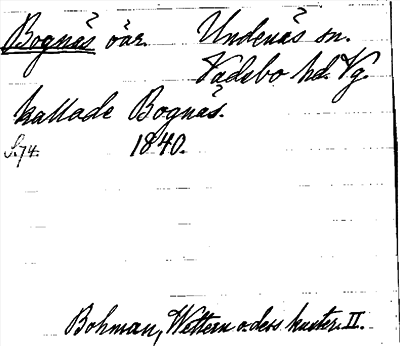 Bognäs öar. Undenäs sn.
Vadsbo hd. Vg.
kallade Bognäs.
S.74. 1840.
Bohman, Wettern o. dess kuster. II.